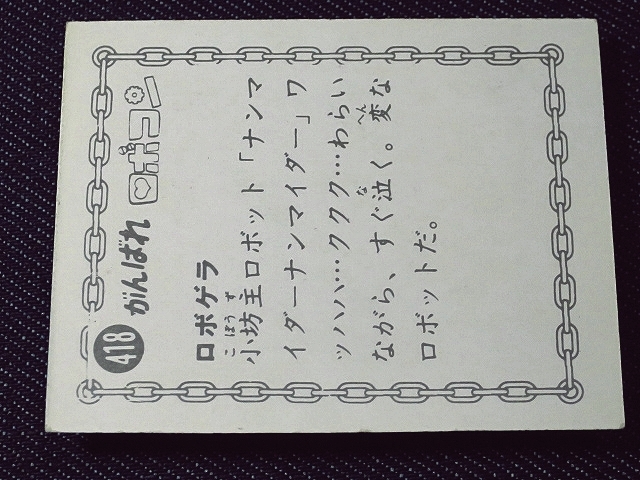 418 がんばれ ロボコン
ロボゲラ
小坊主ロボット「ナンマ
イダーナンマイダー」ワ
ッハハ…ククク…わらい
ながら、すぐ泣く。変な
ロボットだ。
こぼうず
な
へん